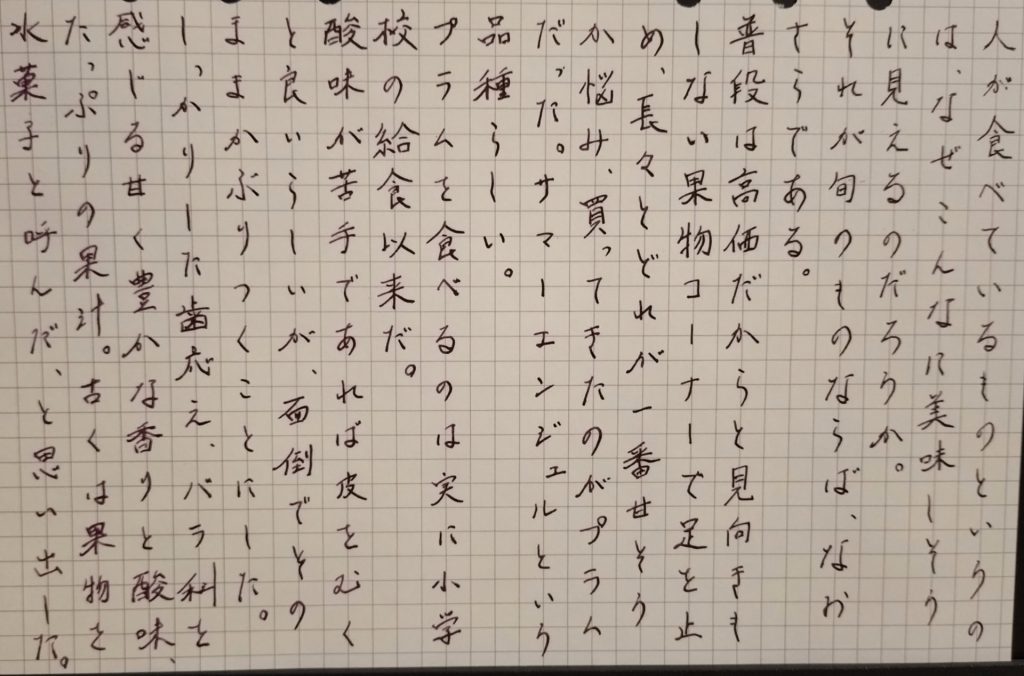 人が食べているものというの
は、なぜこんなに美味しそう
に見えるのだろうか。
それが旬のものならば、なお
さらである。
普段は高価だからと見向きも
しない果物コーナーで足を止
め、長々とどれが一番甘そう
か悩み、買ってきたのがプラム
だった。サマーエンジェルという
品種らしい。
プラムを食べるのは実に小学
校の給食以来だ。
酸味が苦手であれば皮をむく
と良いらしいが、面倒でその
ままかぶりつくことにした。
しっかりした歯応え、バラ科を
感じる甘く豊かな香りと酸味、
たっぷりの果汁。古くは果物を
水菓子と呼んだ、と思い出した。